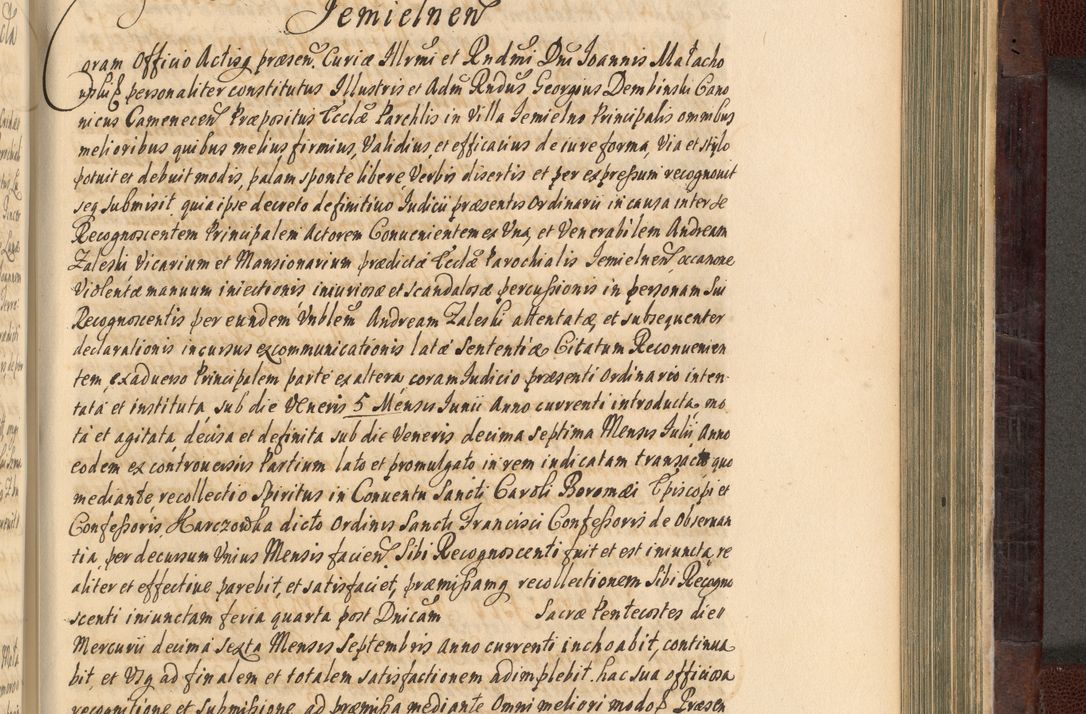 Jemielnen
oram Officio Actisq præsen. Curiæ Illrmi et Rndmi Dni Joannis Małacho
wski ß personaliter constitutus Illustris et Adm Rndus Georgius Dembinski Cano
nicus Camenecen Præpositus Ecclæ Parchlis in Villa Jemielno Principalis omnibus
melioribus quibus melius firmius, Validius, et efficacius de iure forma, Via et stylo
potuit et debuit modis, palam sponte libere, Verbis disertis et per expreßum recognouit
seq submisit, quia ipse decreto definitiuo Iudicii præsentis Ordinarii in causa inter se
Recognoscentem Principalem Actorem Conuenientem ex Una, et Venerabilem Andream
Zaleski Vicarium et Mansionarium prædictæ Ecclæ Parochialis Jemielnen, occasione
Violentæ manuum iniectionis iniuriosæ et scandalosæ percußionis in personam Sui
Recognoscentis per eundem Vnblem Andream Zaleski attentatæ, et subsequenter
declarationis incursus excommunicationis latæ Sententiæ Citatum Reconuenien
tem, ex aduerso Principalem parte ex altera, coram Iudicio præsenti Ordinario inten
tata et instituta, sub die Veneris 5 Mensis Iunii Anno currenti introducta, mo
ta et agitata, decisa et definita sub die Veneris decima septima Mensis Iulii, Anno
eodem ex controuersiis Partium lato et promulgato in rem iudicatam transacto quo
mediante, recollectio Spiritus in Conuentu Sancti Caroli Boromæi Episcopi et
Confeßoris, Karczowka dicto Ordinis Sancti Francisci Confeßoris de Obseruan
tia, per decursum Unius Mensis facien. Sibi Recognoscenti fuit et est iniuncta, re
aliter et effectiue parebit, et satisfaciet, præmißamq recollectionem Sibi Recogno
scenti iniunctam feria quarta post Dnicam Sacræ Pentecostes die
Mercurii decima sexta Mensis Septembris Anno currenti inchoabit, continua
bit, et Usq ad finalem et totalem satisfactionem adimplebit. hac sua officiosa
recognitione et submißione ad præmißa mediante Omni meliori modo ß Præsen